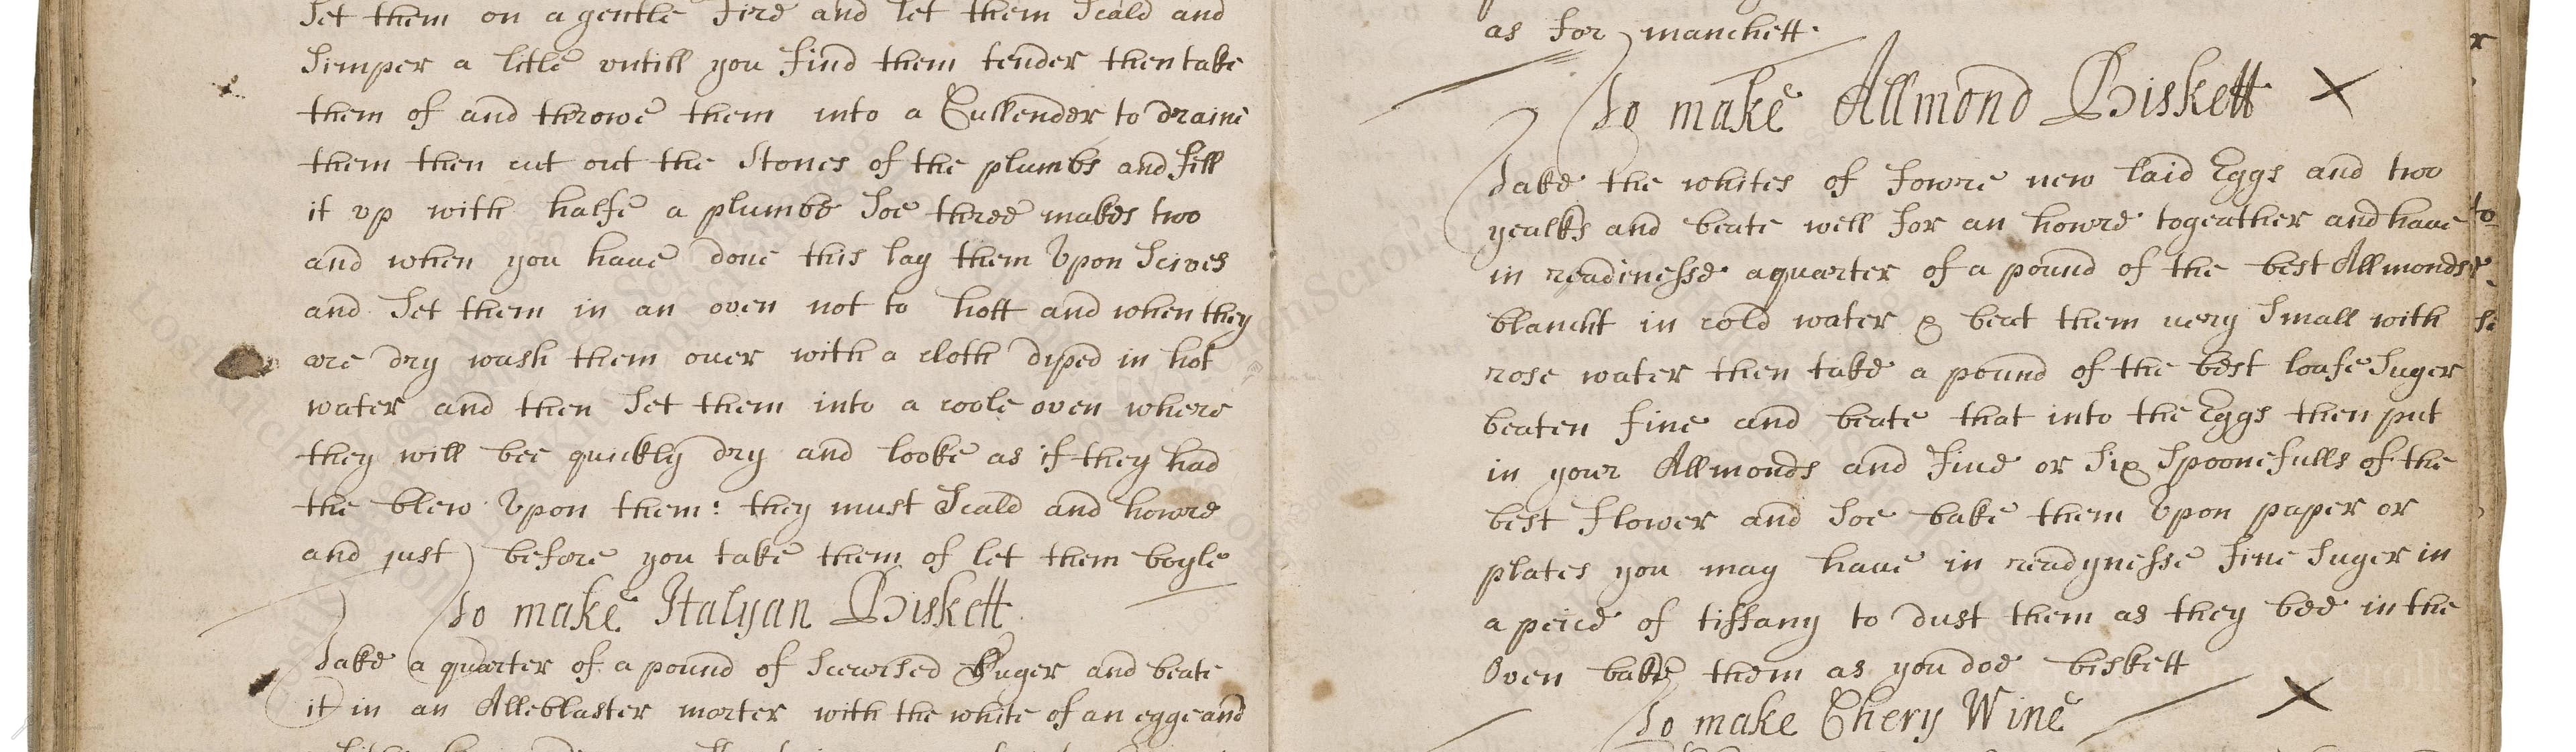 Set them on a gentle fire and let them Scald and
Simper a litle vntill you find them tender then take
them of and throwe them into a Cullender to draine
them then cut out the Stones of the plumbs and fill
it vp with halfe a plumbe Soe three makes two
and when you haue done this lay them Vpon Scives
and Set them in an oven not to hott and when they
are dry wash them ouer with a cloth diped in hot
water and then Set them into a coole oven where
they will bee quickly dry and looke as if they had
the blew Vpon them: they must Scald and howre
and just before you take them of let them boyle
To make Italyan Biskett
Take a quarter of a pound of Scerised Suger and beate
it in an Alleblaster morter with the white of an egge and
as for manchett
To make Allmond Biskett
Take the whites of fowre new laid Eggs and two
yealks and beate well for an howre togeather and haue
in readinesse a quarter of a pound of the best Allmonds
blancht in cold water & beat them uery Small with
rose water then take a pound of the best loafe Suger
beaten fine and beate that into the Eggs then put
in your Allmonds and fiue or Six Spoonefulls of the
best flower and Soe bake them Vpon paper or
plates you may haue in readynesse fine Suger in
a peice of tiffany to dust them as they bee in the
Oven bake them as you doe biskett
To make Chery Wine